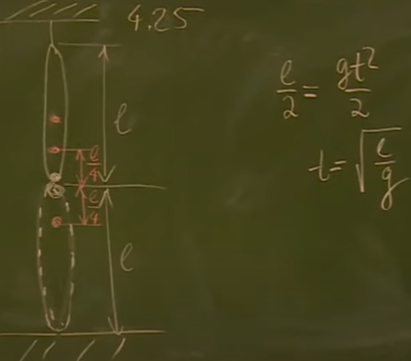 4.25
ℓ
ℓ/4
ℓ/4
ℓ
ℓ/2 = gt²/2
t = √(ℓ/g)